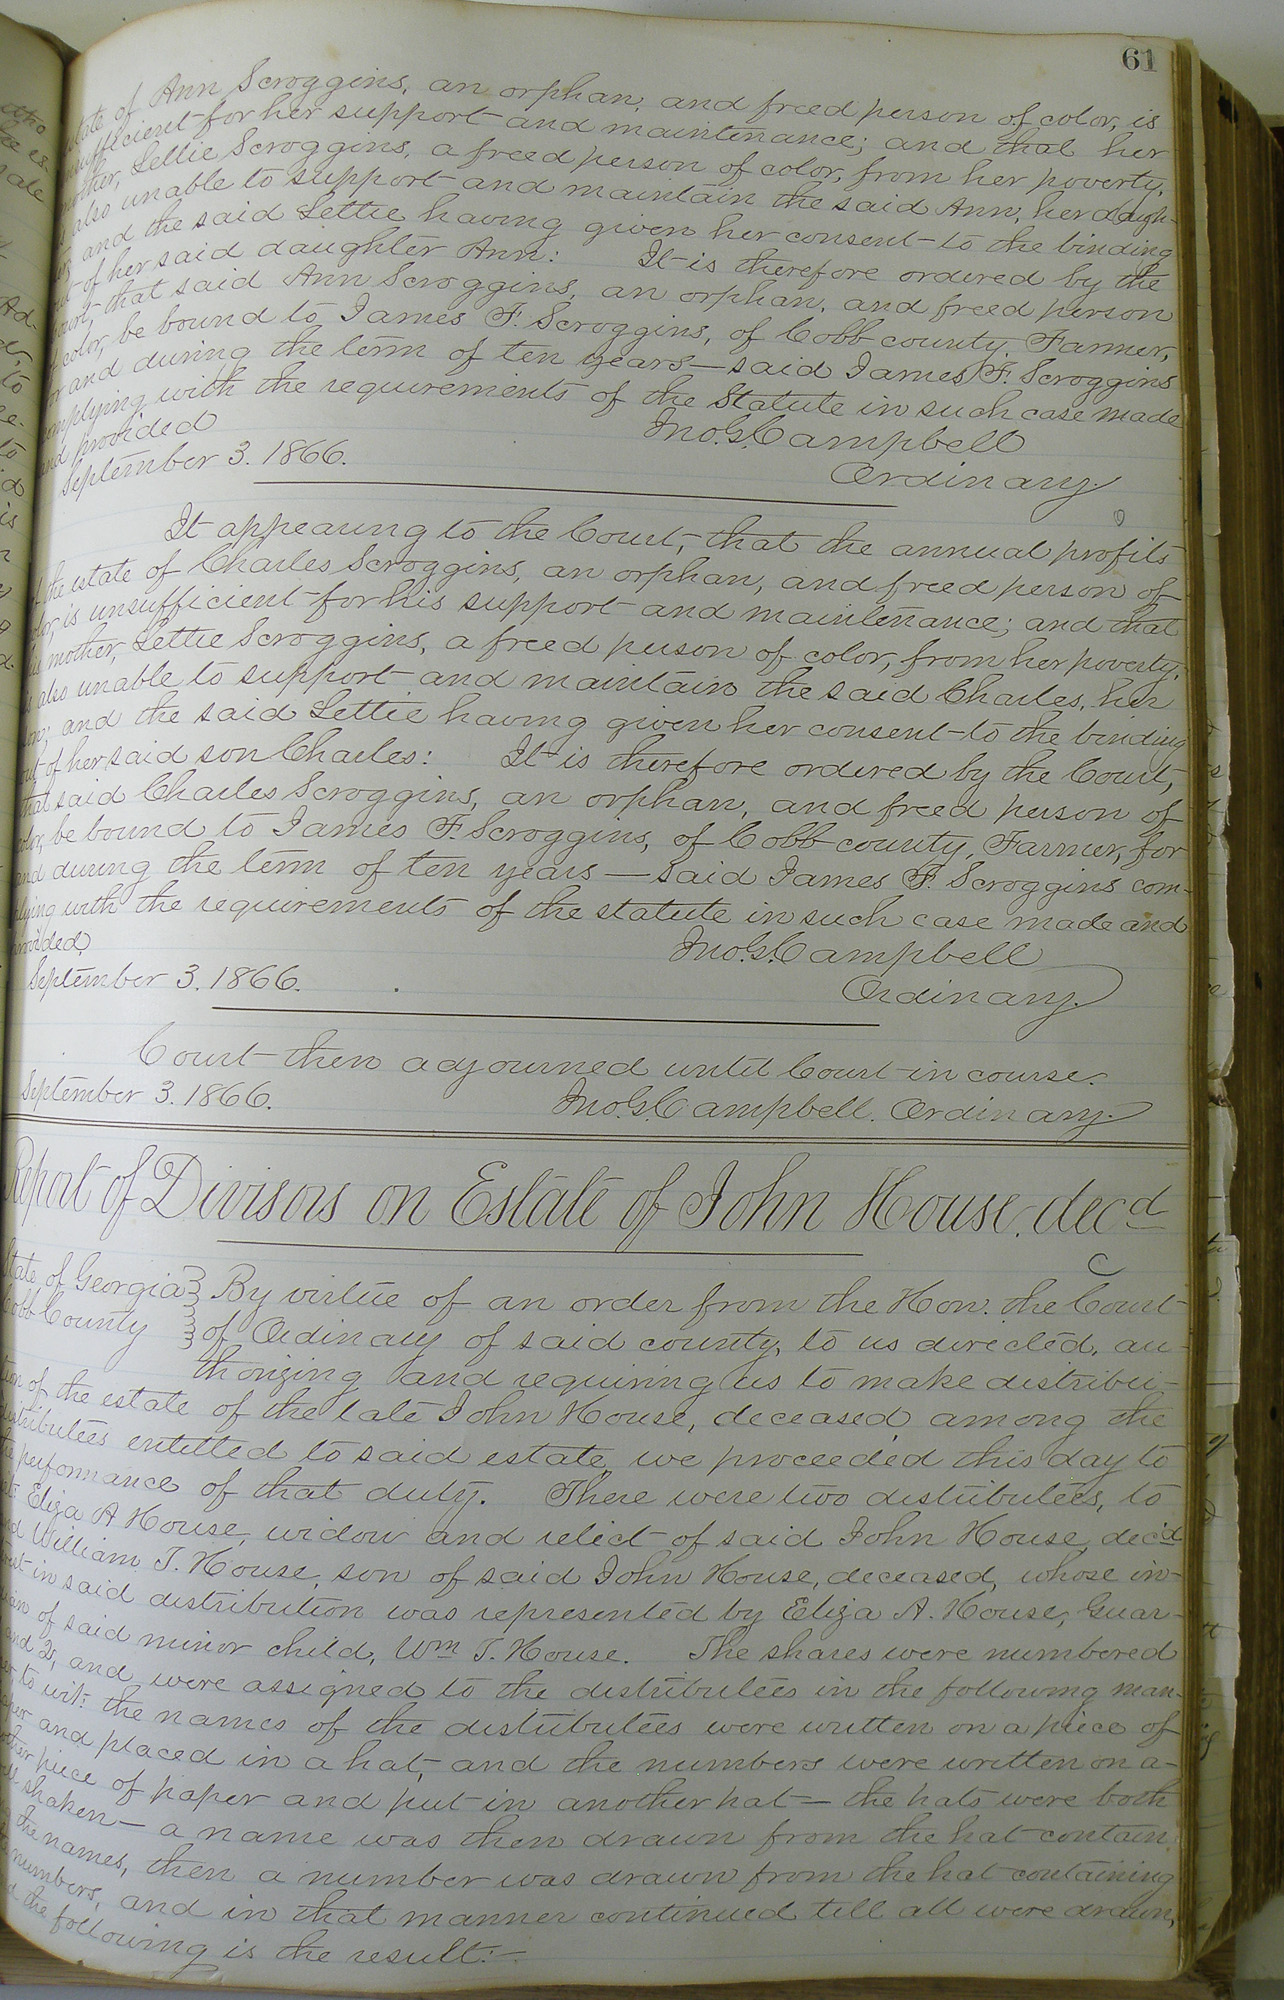 61
estate of Ann Scroggins, an orphan, and freed person of color, is
unsufficient for her support and maintenance; and that her
mother, Lettie Scroggins, a freed person of color, from her poverty,
is also unable to support and maintain the said Ann, her daugh-
ter; and the said Lettie having given her consent to the binding
out of her said daughter Ann: It is therefore ordered by the
Court, that said Ann Scroggins, an orphan, and freed person
of color, be bound to James F. Scroggins, of Cobb county, Farmer,
for and during the term of ten years — said James F. Scroggins
complying with the requirements of the Statute in such case made
and provided
Jno. G. Campbell
September 3. 1866.
Ordinary.
It appearing to the Court, that the annual profits
of the estate of Charles Scroggins, an orphan, and freed person of
color, is unsufficient for his support and maintenance; and that
his mother, Lettie Scroggins, a freed person of color, from her poverty,
is also unable to support and maintain the said Charles, her
son; and the said Lettie having given her consent to the binding
out of her said son Charles: It is therefore ordered by the Court,
that said Charles Scroggins, an orphan, and freed person of
color, be bound to James F. Scroggins, of Cobb county, Farmer, for
and during the term of ten years — said James F. Scroggins com-
plying with the requirements of the statute in such case made and
provided,
Jno. G. Campbell
September 3. 1866.
Ordinary.
Court then adjourned until Court in course.
September 3. 1866.
Jno. G. Campbell. Ordinary.
Report of Divisors on Estate of John House, decd
State of Georgia } By virtue of an order from the Hon. the Court
Cobb County } of Ordinary of said county, to us directed, au-
thorizing and requiring us to make distribu-
tion of the estate of the late John House, deceased, among the
distributees entitled to said estate, we proceeded this day to
the performance of that duty. There were two distributees, to
wit: Eliza A House, widow and relict of said John House, decd
and William T. House, son of said John House, deceased, whose in-
terest in said distribution was represented by Eliza A. House, Guar-
dian of said minor child, Wm T. House. The shares were numbered
and 2, and were assigned to the distributees in the following man-
ner to wit: the names of the distributees were written on a piece of
paper and placed in a hat, and the numbers were written on a-
nother piece of paper and put in another hat — the hats were both
well shaken — a name was then drawn from the hat contain
the names, then a number was drawn from the hat containing
the numbers, and in that manner continued till all were drawn,
and the following is the result:—